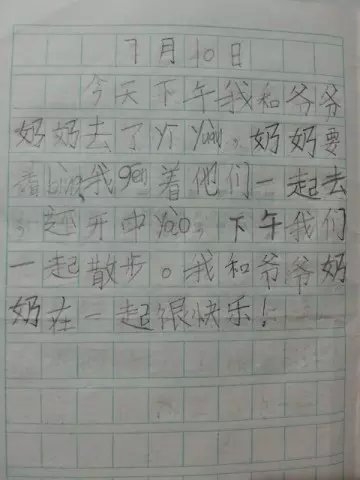 7月10日
今天下午我和爷爷
奶奶去了yī yuàn，奶奶要
看bìng，我gēn着他们一起去
，还开中yào，下午我们
一起散步。我和爷爷奶
奶在一起很快乐！